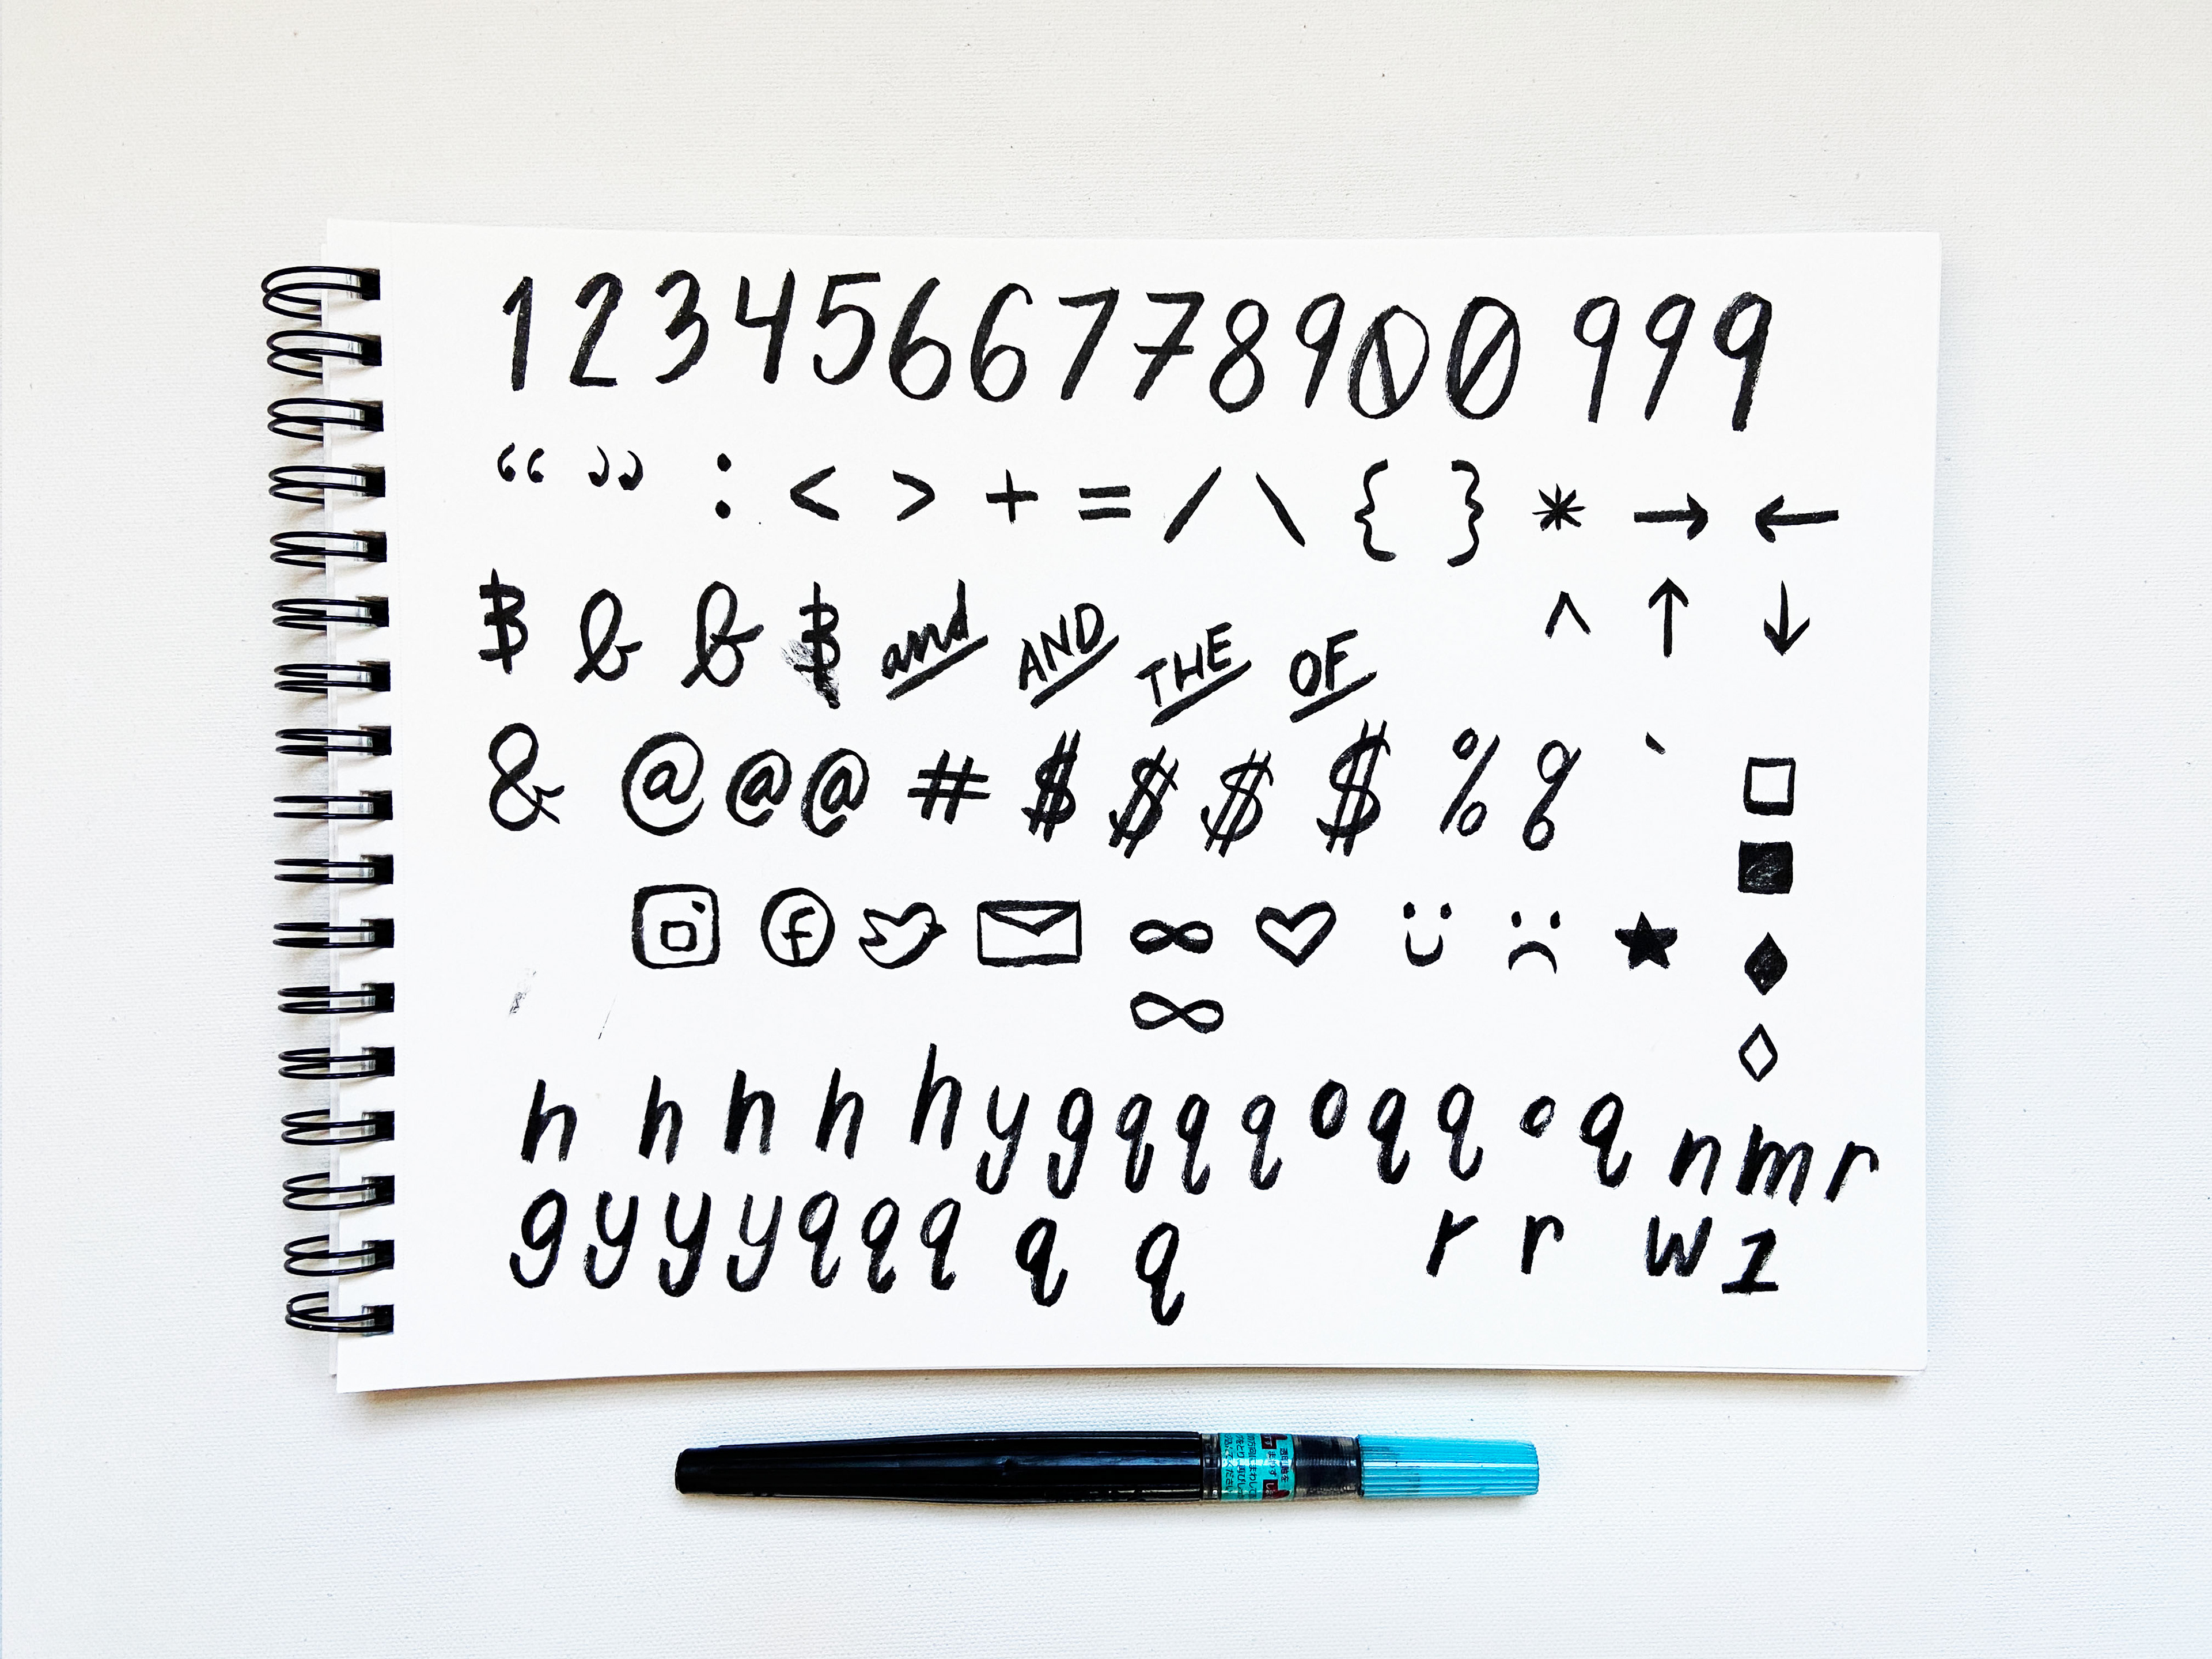 1 2 3 4 5 6 6 7 7 8 9 0 0 9 9 9
“ ” : < > + = / \ { } * → ←
฿ & & ฿ and AND THE OF ^ ↑ ↓
& @ @ @ # $ $ $ $ % % ` □
■
f ∞ ♡ ★ ◆
∞ ◇
h h h h h y g q q q o q q o q n m r
g y y y q q q q q r r w 1